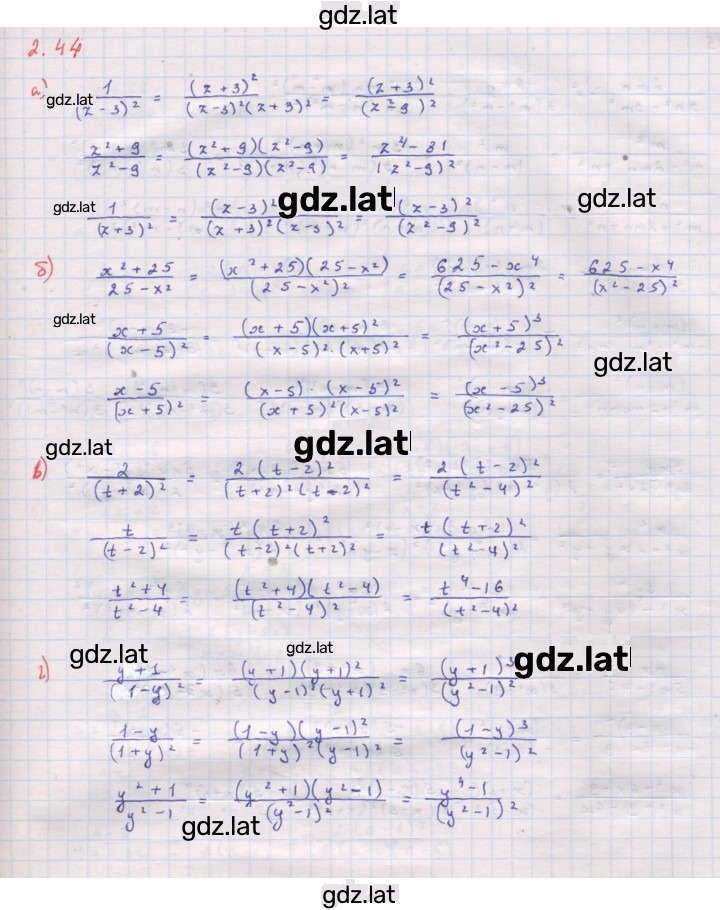 gdz.lat
2.44
а) 1/(z-3)² = (z+3)²/((z-3)²(z+3)²) = (z+3)²/(z²-9)²
gdz.lat
(z²+9)/(z²-9) = ((z²+9)(z²-9))/((z²-9)(z²-9)) = (z⁴-81)/(z²-9)²
gdz.lat gdz.lat gdz.lat
1/(z+3)² = (z-3)²/((z+3)²(z-3)²) = (z-3)²/(z²-9)²
б) (x²+25)/(25-x²) = ((x²+25)(25-x²))/(25-x²)² = (625-x⁴)/(25-x²)² = (625-x⁴)/(x²-25)²
gdz.lat
(x+5)/(x-5)² = ((x+5)(x+5)²)/((x-5)²·(x+5)²) = (x+5)³/(x²-25)²
gdz.lat
(x-5)/(x+5)² = ((x-5)·(x-5)²)/((x+5)²(x-5)²) = (x-5)³/(x²-25)²
gdz.lat gdz.lat
в) 2/(t+2)² = (2(t-2)²)/((t+2)²(t-2)²) = (2(t-2)²)/(t²-4)²
t/(t-2)² = (t(t+2)²)/((t-2)²(t+2)²) = (t(t+2)²)/(t²-4)²
(t²+4)/(t²-4) = ((t²+4)(t²-4))/(t²-4)² = (t⁴-16)/(t²-4)²
gdz.lat gdz.lat gdz.lat
г) (y+1)/(1-y)² = ((y+1)(y+1)²)/((y-1)²(y+1)²) = (y+1)³/(y²-1)²
(1-y)/(1+y)² = ((1-y)(y-1)²)/((1+y)²(y-1)²) = (1-y)³/(y²-1)²
(y²+1)/(y²-1) = ((y²+1)(y²-1))/(y²-1)² = (y⁴-1)/(y²-1)²
gdz.lat
gdz.lat